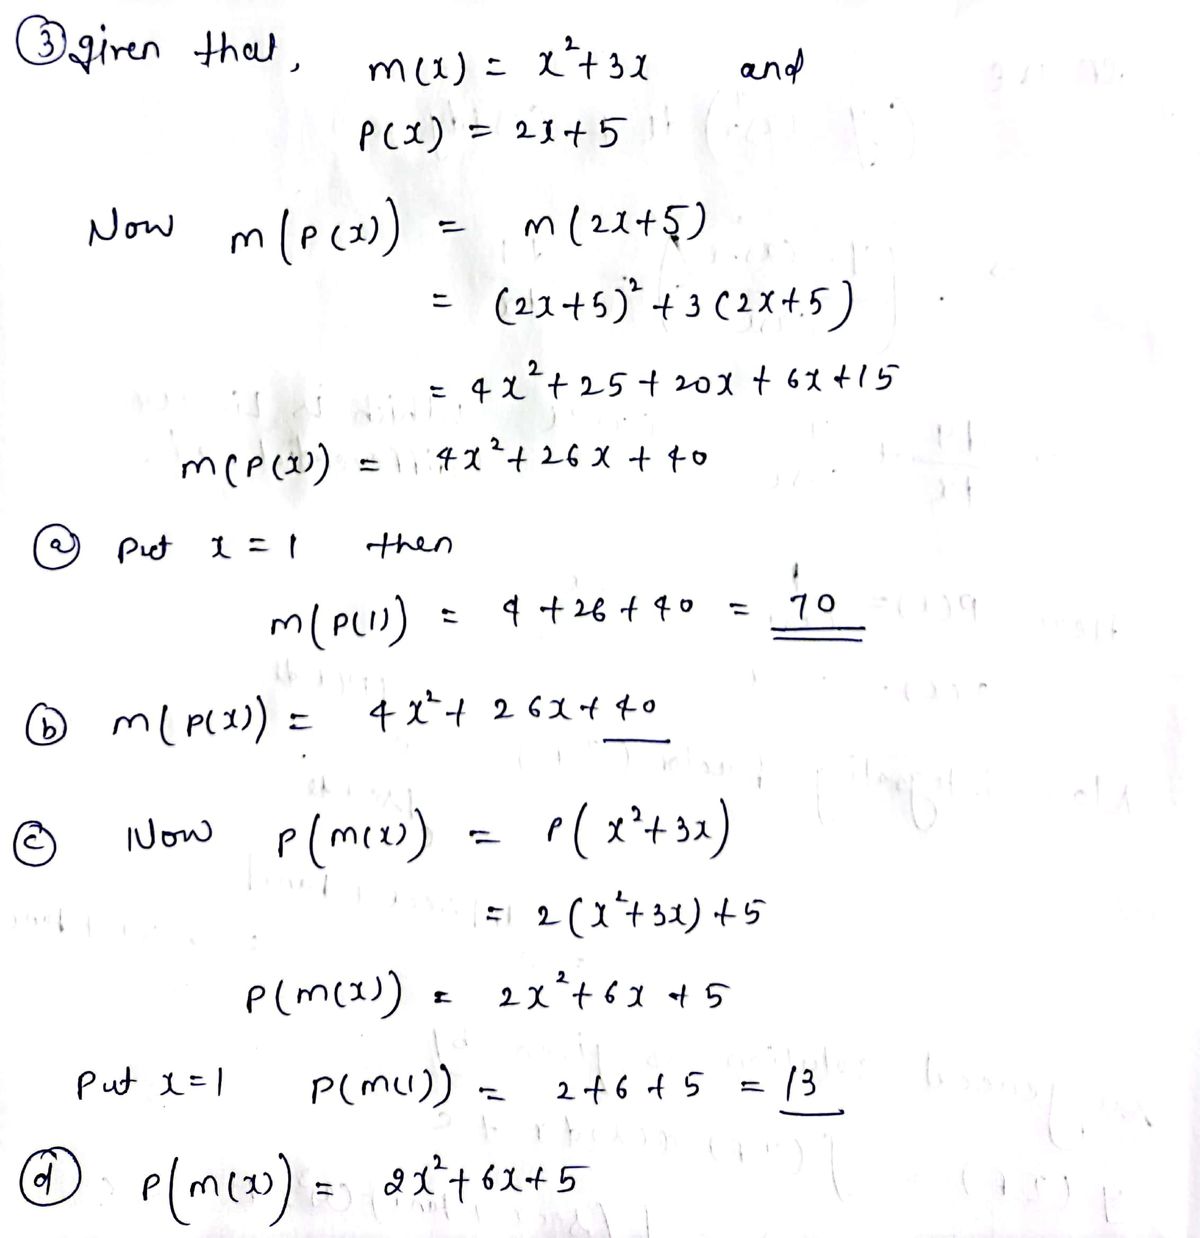 ③ given that, m(x) = x²+3x and
P(x) = 2x+5
Now m(P(x)) = m(2x+5)
= (2x+5)² + 3(2x+5)
= 4x²+25+20x+6x+15
m(P(x)) = 4x²+26x+40
ⓐ Put x=1 then
m(P(1)) = 4+26+40 = 70
ⓑ m(P(x)) = 4x²+26x+40
ⓒ Now P(m(x)) = P(x²+3x)
= 2(x²+3x)+5
P(m(x)) = 2x²+6x+5
Put x=1 P(m(1)) = 2+6+5 = 13
ⓓ P(m(x)) = 2x²+6x+5